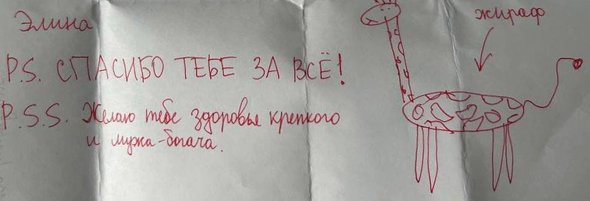 Элина
жираф
P.S. СПАСИБО ТЕБЕ ЗА ВСЁ!
P.S.S. Желаю тебе здоровья крепкого
и мужа-богача.